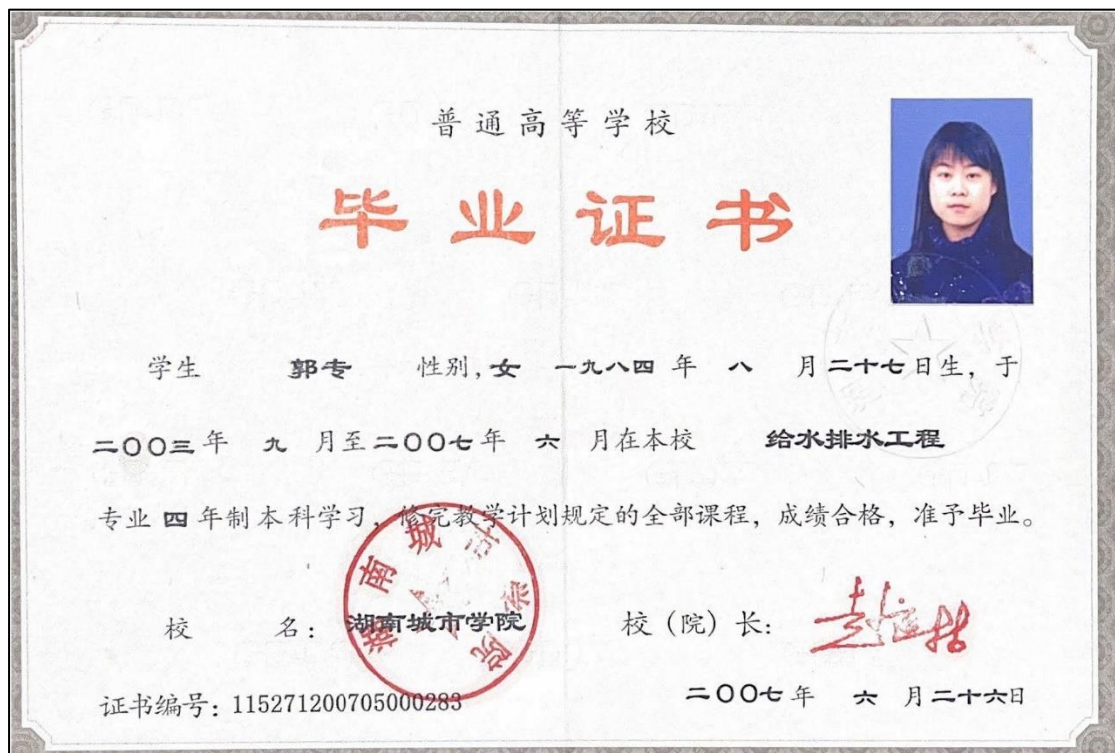 普通高等学校
毕业证书
学生 郭专 性别,女 一九八四年 八 月二十七日生，于
二〇〇三年 九 月至二〇〇七年 六 月在本校 给水排水工程
专业 四 年制本科学习，修完教学计划规定的全部课程，成绩合格，准予毕业。
湖南城市学院
校 名：湖南城市学院 校（院）长：
证书编号：115271200705000283 二〇〇七年 六 月二十六日